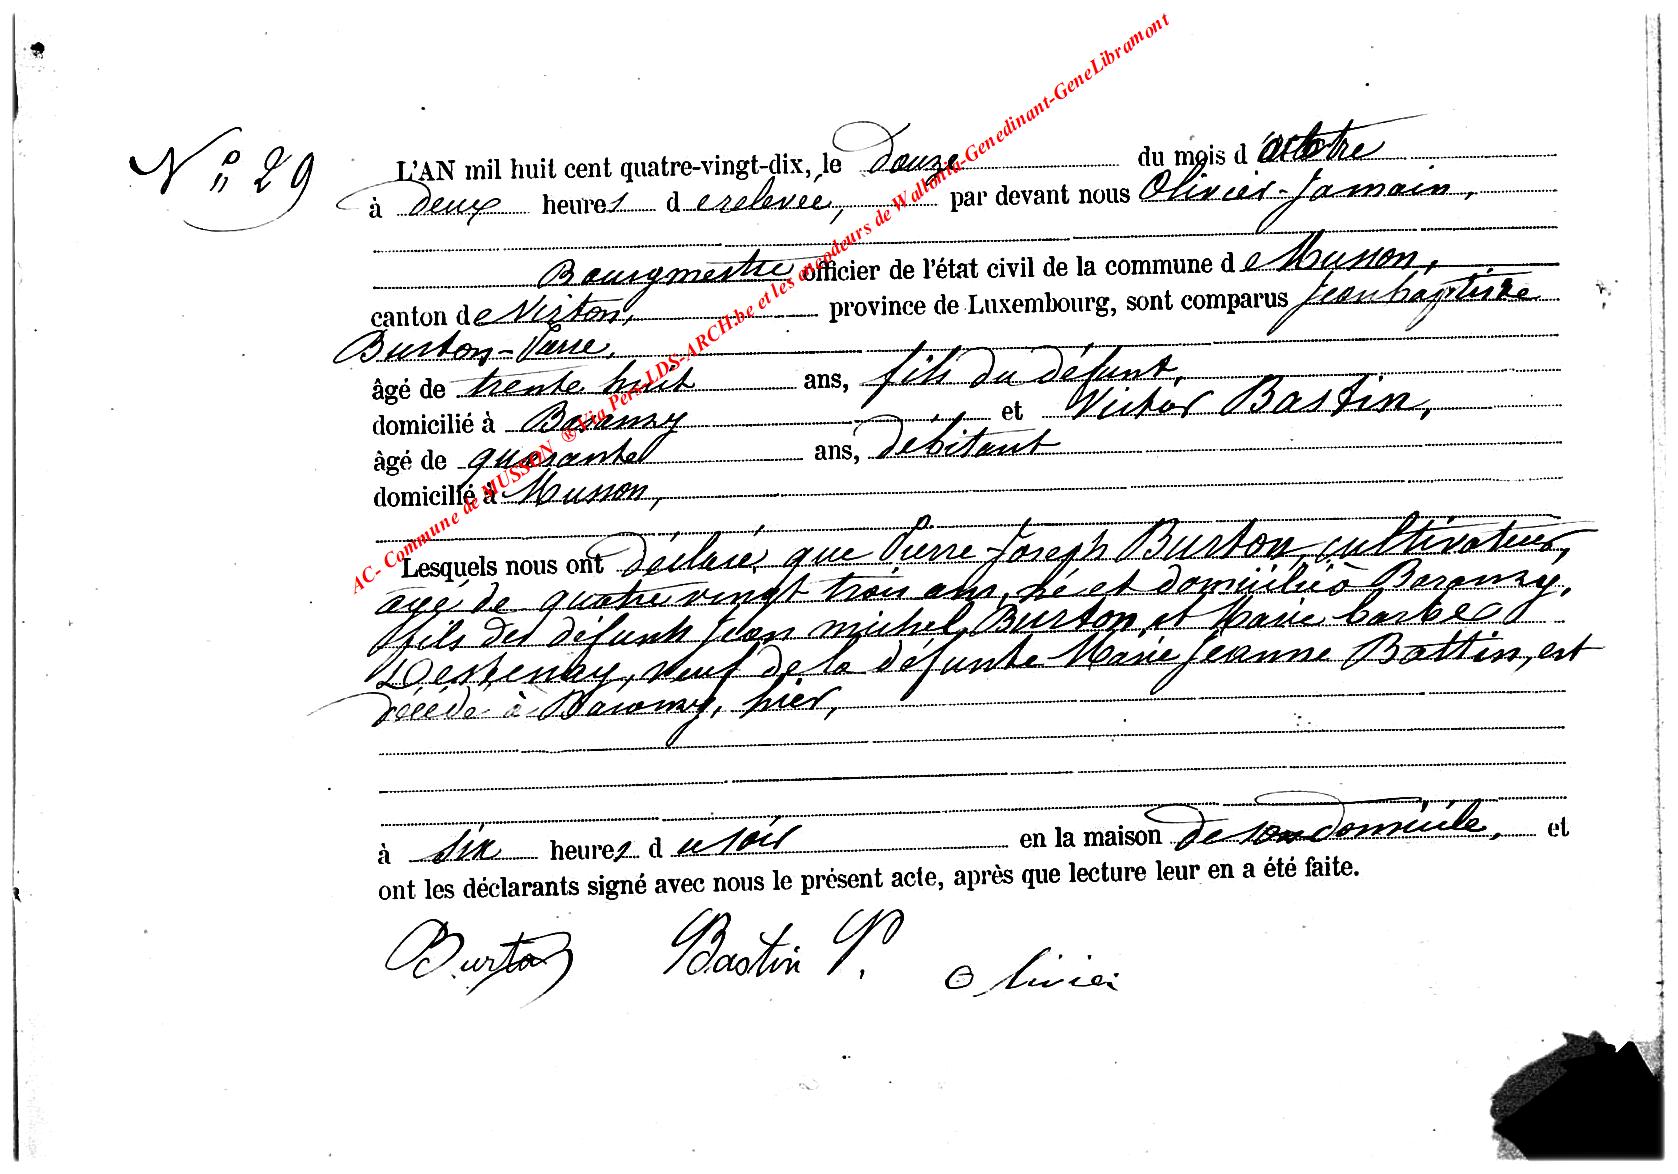 N° 29
L'AN mil huit cent quatre-vingt-dix, le douze du mois d'octobre
à deux heures de relevée, par devant nous Olivier-Jamain,
Bourgmestre officier de l'état civil de la commune de Musson,
canton de Virton, province de Luxembourg, sont comparus Jean baptiste
Burton-
âgé de trente huit ans, fils du défunt,
domicilié à Baranzy et Victor Bastin,
âgé de quarante ans, débitant
domicilié à Musson,
Lesquels nous ont déclaré que Pierre-Joseph Burton, cultivateur,
âgé de quatre vingt trois ans, né et domicilié à Baranzy,
fils des défunts Jean michel Burton et Marie barbe
veuf de la défunte Marie Jeanne Battin, est
décédé à Baranzy, hier,
à six heures du soir en la maison de son domicile, et
ont les déclarants signé avec nous le présent acte, après que lecture leur en a été faite.
Burton Bastin V. Olivier
AC- Commune de MUSSON ® Via Pers-LDS-ARCH.be et les encodeurs de Wallonia-Genedinant-GeneLibramont